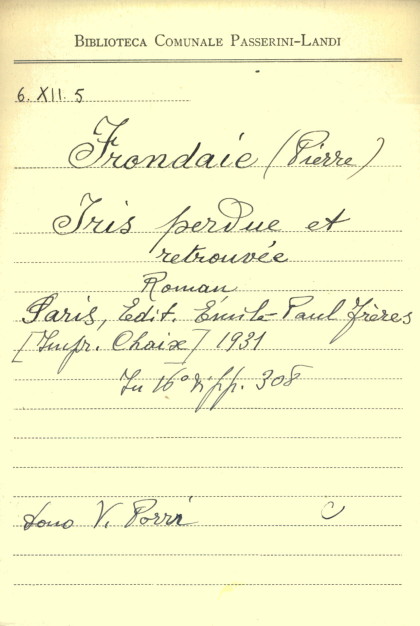 BIBLIOTECA COMUNALE PASSERINI-LANDI
6. XII. 5
Frondaie (Pierre)
Iris perdue et
retrouvée
Roman
Paris, Edit. Émile-Paul Frères
[Impr. Chaix] 1931
In 16° di pp. 308
dono V. Porri C